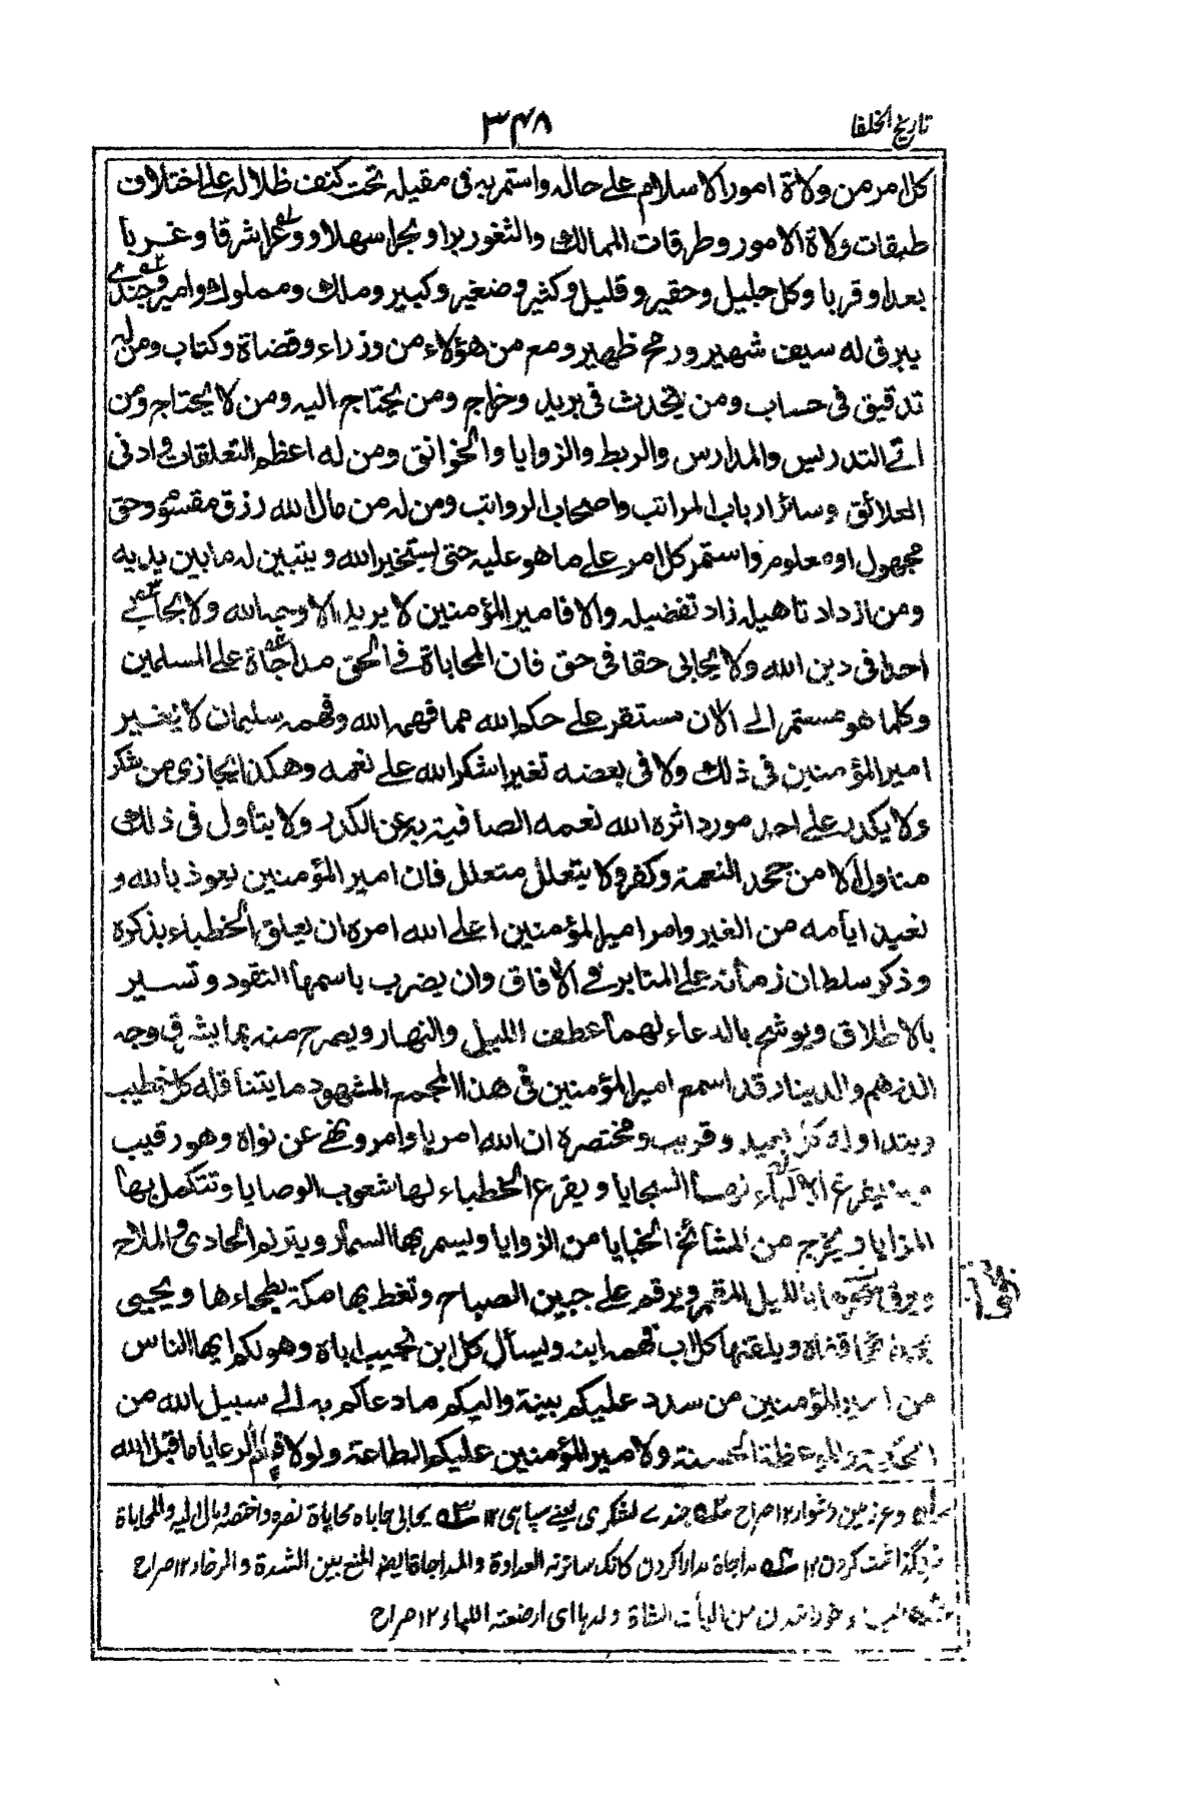 تاريخ الخلفا
٣٤٨
كل امر من ولاة امور الاسلام على حاله واستمر به فى مقيله تحت كنف ظلاله على اختلاف
طبقات ولاة الامور وطرقات الممالك والثغور برا وبحرا سهلا ووعرا شرقا وغربا
بعدا وقربا وكل جليل وحقير وقليل وكثير وصغير وكبير وملك ومملوك وامير وجندي
يبرق له سيف شهير ورمح ظهير ومع من هؤلاء من وزراء وقضاة وكتاب ومن له
تدقيق فى حساب ومن يتحدث فى بريد وخراج ومن يحتاج اليه ومن لا يحتاج ومن
فى التدريس والمدارس والربط والزوايا والخوانق ومن له اعظم التعلقات وادنى
العلائق وسائر ارباب المراتب واصحاب الرواتب ومن له من مال الله رزق مقسوم وحق
مجهول او معلوم واستمر كل امر على ما هو عليه حتى يستخير الله ويتبين له ما بين يديه
ومن ازداد تاهيله زاد تفضيله والا فامير المؤمنين لا يريد الا وجه الله ولا يحابي
احدا فى دين الله ولا يحابى حقا فى حق فان المحاباة فى الحق مداجاة على المسلمين
وكلما هو مستمر الى الان مستقر على حكم الله مما فهمه الله وفهمه سليمان لا يغير
امير المؤمنين فى ذلك ولا فى بعضه تغيرا شكر الله على نعمه وهكذا يجازى من شكر
ولا يكدر على احد مورد اثره الله نعمه الصافية به عن الكدر ولا يتأول فى ذلك
متاول الا من جحد النعمة وكفر ولا يتعلل متعلل فان امير المؤمنين يعوذ بالله و
نعيذ ايامه من الغير وامر امير المؤمنين اعلى الله امره ان يعلن الخطباء بذكره
وذكر سلطان زمانه على المنابر فى الافاق وان يضرب باسمها النقود وتسير
بالاطلاق ويوشح بالدعاء لهما عطف الليل والنهار ويصرح منه بما يشرق وجه
الدرهم والدينار قد اسمع امير المؤمنين فى هذا المجمع المشهود ما يتناقله كل خطيب
ويتداوله كل بعيد وقريب ومختصره ان الله امر باوامر ونهى عن نواه وهو رقيب
السجايا ويقرع الخطباء لها شعوب الوصايا وتتكمل بها
المزايا ويخرج من المشائخ الخبايا من الزوايا ويسمر بها السمار ويترنم الحادى والملاح
الليل المقمر ويرقم على جبين الصباح وتغط بها مكة بطحاءها ويحيى
ويلقنها كل اب فهمه ابنه ويسأل كل ابن نجيب اباه وهو لكم ايها الناس
من امير المؤمنين من سدد عليكم بينة واليكم ما دعاكم به الى سبيل الله من
الحكمة والموعظة الحسنة ولامير المؤمنين عليكم الطاعة ولولا قيام الرعايا ما قبل الله
وعر زمين دشوار ١٢ صراح جندے لشكرى يعنے سپاہى ١٢ يحابى حاباه محاباة نصره واختصه بال اليه والمحاباة
فروگذاشت كردن ١٢ مداجاة مدارا كردن كانك ساترته العداوة والمداجاة ايضا المنع بين الشدة والرخاء ١٢ صراح
من البات الشاة ولدها اى ارضعته اللباء ١٢ صراح